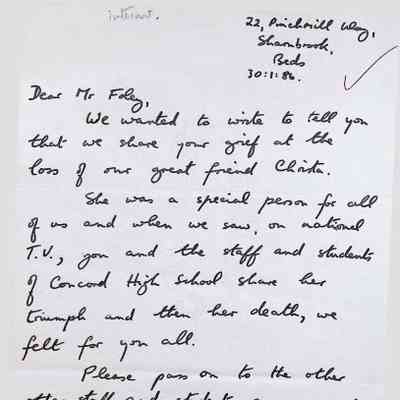 interest.
22, Pinchmill Way,
Sharnbrook,
Beds
30:1:86.
Dear Mr Foley,
We wanted to write to tell you
that we share your grief at the
loss of our great friend Christa.
She was a special person for all
of us and when we saw, on national
T.V., you and the staff and students
of Concord High School share her
triumph and then her death, we
felt for you all.
Please pass on to the other